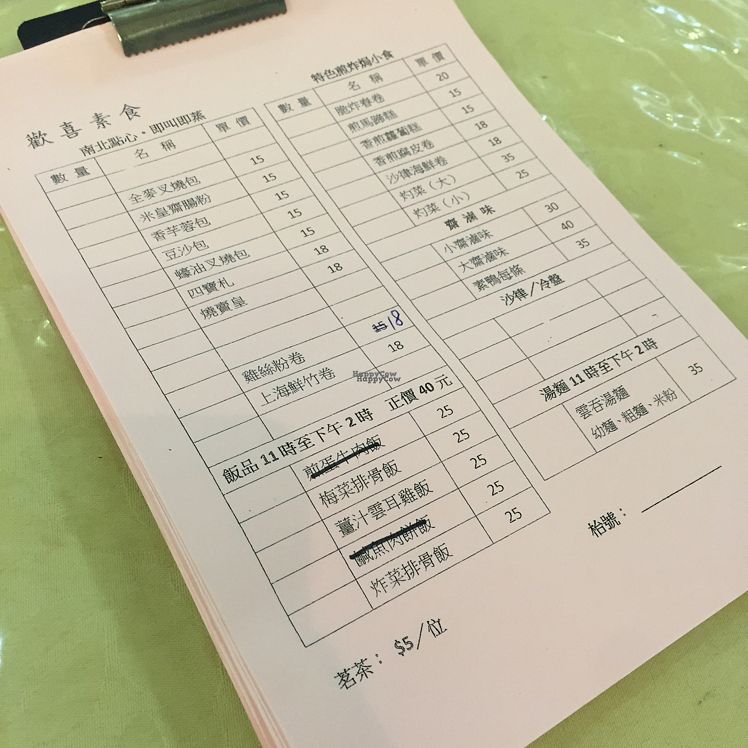 歡喜素食
南北點心·即叫即蒸
數 量 名 稱 單 價
全麥叉燒包 15
米皇齋腸粉 15
香芋蓉包 15
豆沙包 15
蠔油叉燒包 15
四寶札 18
燒賣皇 18
雞絲粉卷 15 18
上海鮮竹卷 18
飯品 11 時至下午 2 時 正價 40 元
煎蛋牛肉飯 25
梅菜排骨飯 25
薑汁雲耳雞飯 25
鹹魚肉餅飯 25
炸菜排骨飯 25
茗茶： $5／位
特色煎炸焗小食
數 量 名 稱 單 價
脆炸春卷 20
煎馬蹄糕 15
香煎蘿蔔糕 15
香煎腐皮卷 18
沙律海鮮卷 18
灼菜（大） 35
灼菜（小） 25
齋 滷 味
小齋滷味 30
大齋滷味 40
素鴨每條 35
沙律／冷盤
湯麵 11 時至下午 2 時
雲吞湯麵 35
幼麵、粗麵、米粉
枱號：
HappyCow
HappyCow